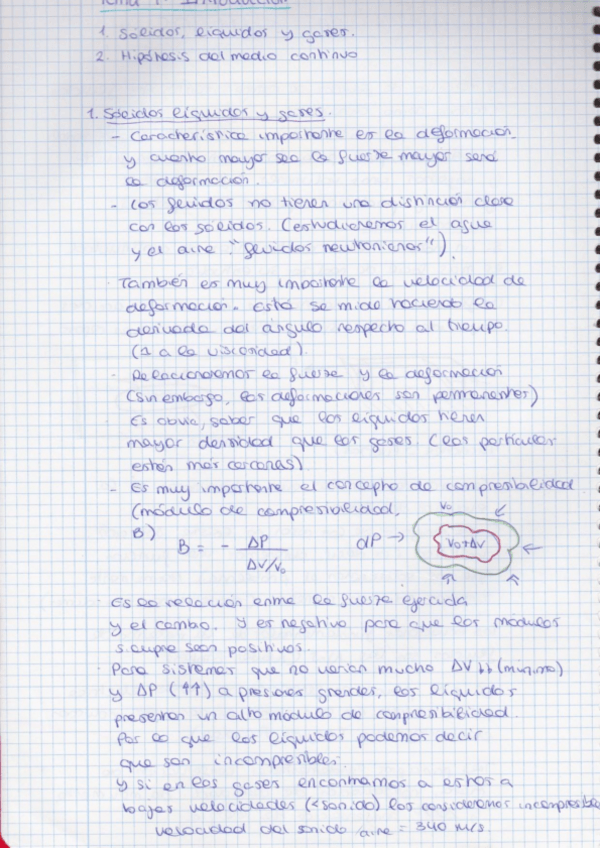 Tema 1: Introducción
1. Sólidos, líquidos y gases.
2. Hipótesis del medio continuo
1. Sólidos líquidos y gases.
- Característica importante es la deformación
y cuanto mayor sea la fuerza mayor será
la deformación.
- Los fluidos no tienen una distinción clara
con los sólidos. (estudiaremos el agua
y el aire "fluidos newtonianos").
· También es muy importante la velocidad de
deformación. esta se mide haciendo la
derivada del ángulo respecto al tiempo.
(1 a la viscosidad).
· Relacionaremos la fuerza y la deformación
(sin embargo, las deformaciones son permanentes)
· Es obvio, saber que los líquidos tienen
mayor densidad que los gases (las partículas
están más cercanas)
- Es muy importante el concepto de compresibilidad
(módulo de compresibilidad,
B)
B = - ΔP / ΔV/V₀
dP →
V₀
V₀+ΔV
· Es la relación entre la fuerza ejercida
y el cambio. Y es negativo para que los módulos
siempre sean positivos.
· Para sistemas que no varían mucho ΔV ↓↓ (mínimo)
y ΔP (↑↑) a presiones grandes, los líquidos
presentan un alto módulo de compresibilidad.
Por lo que los líquidos podemos decir
que son incompresibles.
y si en los gases encontramos a estos a
bajas velocidades (<sonido) los consideramos incompresibles
velocidad del sonido aire = 340 m/s.